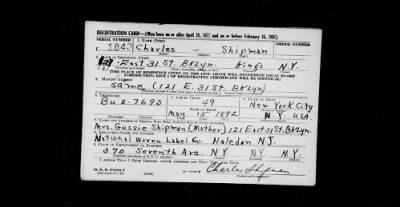 REGISTRATION CARD—(Men born on or after April 28, 1877 and on or before February 16, 1897)
SERIAL NUMBER 1. NAME (Print) ORDER NUMBER
U 1843 Charles - Shipman
2. PLACE OF RESIDENCE (Print)
121 East 31 St. BKLyn Kings N.Y.
[THE PLACE OF RESIDENCE GIVEN ON THE LINE ABOVE WILL DETERMINE LOCAL BOARD
JURISDICTION; LINE 2 OF REGISTRATION CERTIFICATE WILL BE IDENTICAL]
3. MAILING ADDRESS
same (121 E. 31 St. BKLyn)
4. TELEPHONE 5. AGE IN YEARS 6. PLACE OF BIRTH
Bu 2-7693 49 New York City
DATE OF BIRTH
May 15 1892 N.Y. USA.
7. NAME AND ADDRESS OF PERSON WHO WILL ALWAYS KNOW YOUR ADDRESS
Mrs. Gussie Shipman (Mother) 121 East 31 St. BKLyn.
8. EMPLOYER'S NAME AND ADDRESS
National Woven Label Co Haledon N.J.
9. PLACE OF EMPLOYMENT OR BUSINESS
370 Seventh Ave NY NY N.Y.
I AFFIRM THAT I HAVE VERIFIED ABOVE ANSWERS AND THAT THEY ARE TRUE.
D. S. S. Form 1
Charles Shipman